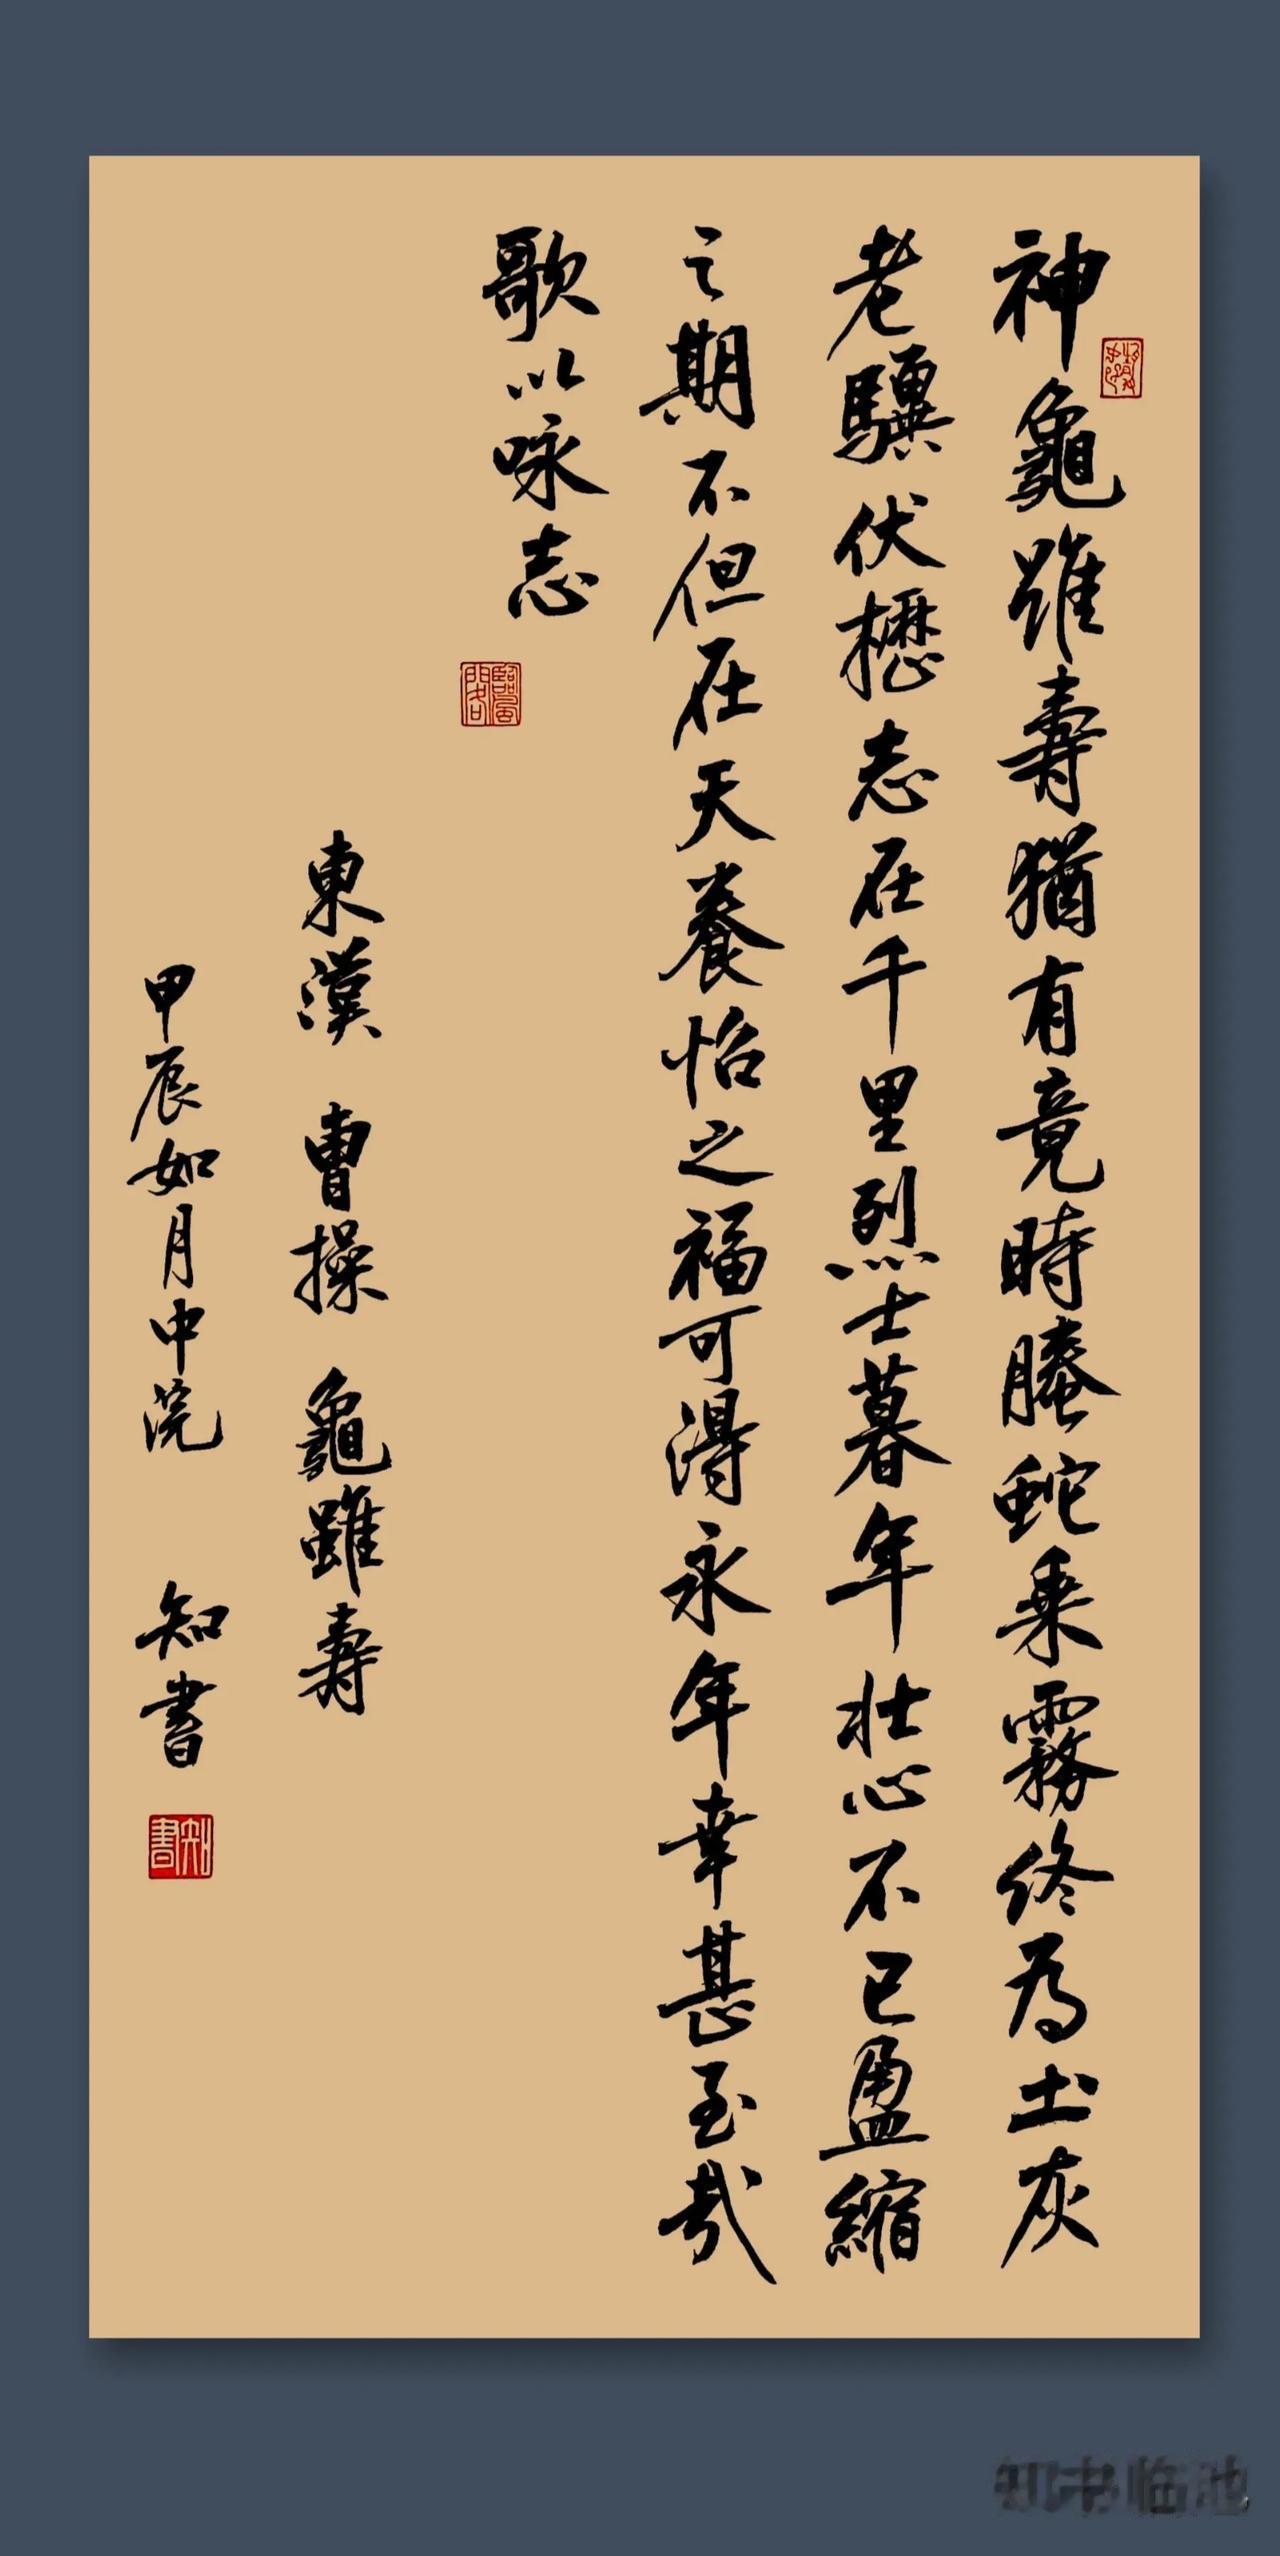 神龜雖壽猶有竟時螣蛇乘霧終為土灰
老驥伏櫪志在千里烈士暮年壯心不已盈縮
之期不但在天養怡之福可得永年幸甚至哉
歌以咏志
東漢 曹操 龜雖壽
甲辰如月中浣 知書
知書
知书临池